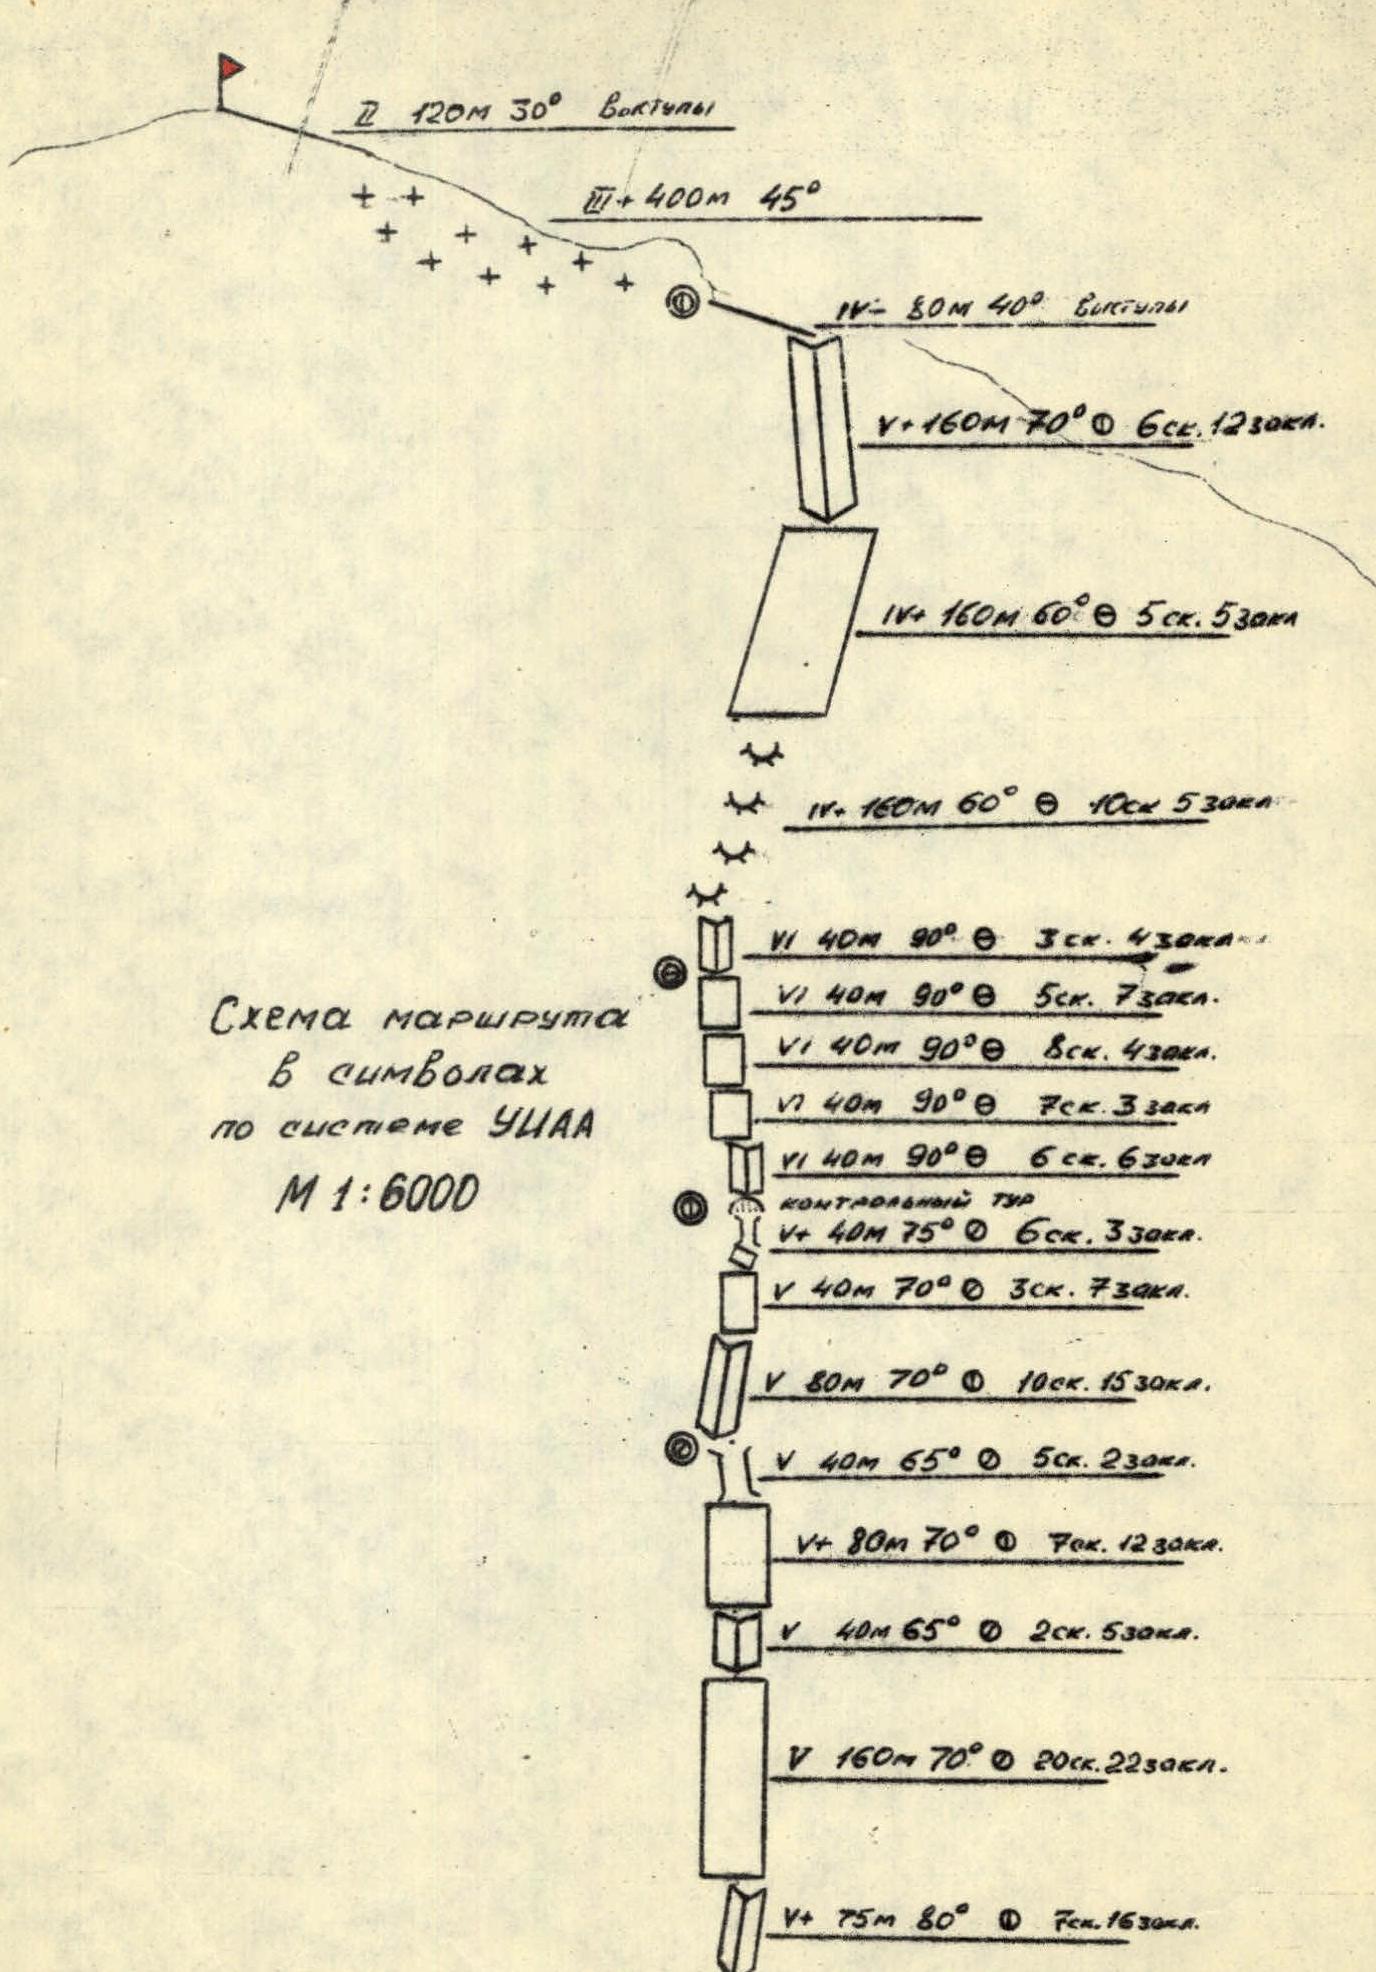 II 120м 30° Выступы
III+ 400м 45°
IV- 80м 40° Выступы
V+ 160м 70° 6ск. 12закл.
IV+ 160м 60° 5ск. 5закл
IV+ 160м 60° 10ск 5закл
VI 40м 90° 3ск. 4закл
VI 40м 90° 5ск. 7закл.
Схема маршрута
в символах
по системе УИАА
М 1:6000
VI 40м 90° 8ск. 4закл.
VI 40м 90° 7ск. 3закл
VI 40м 90° 6ск. 6закл
контрольный тур
V+ 40м 75° 6ск. 3закл.
V 40м 70° 3ск. 7закл.
V 80м 70° 10ск. 15закл.
V 40м 65° 5ск. 2закл.
V+ 80м 70° 7ск. 12закл.
V 40м 65° 2ск. 5закл.
V 160м 70° 20ск. 22закл.
V+ 75м 80° 7ск. 16закл.